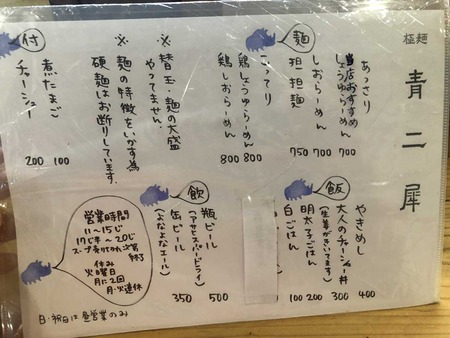 極麺 青二犀
麺
あっさり
当店おすすめ
しょうゆらーめん 700
しおらーめん 700
担担麺 750
こってり
鶏しょうゆらーめん 800
鶏しおらーめん 800
※替玉・麺の大盛
やってません。
※麺の特徴をいかす為
硬麺はお断りしています。
付
煮たまご 100
チャーシュー 200
飯
やきめし 400
大人のチャーシュー丼 300
(生姜がきいてます)
明太子ごはん 200
白ごはん 100
飲
瓶ビール 500
(アサヒスーパードライ)
缶ビール 350
(よなよなエール)
営業時間
11〜15じ
17じ半〜20じ
スープ売りきれ次第
終了
休み
火曜日
月に2回
月・火連休
日・祝日は昼営業のみ